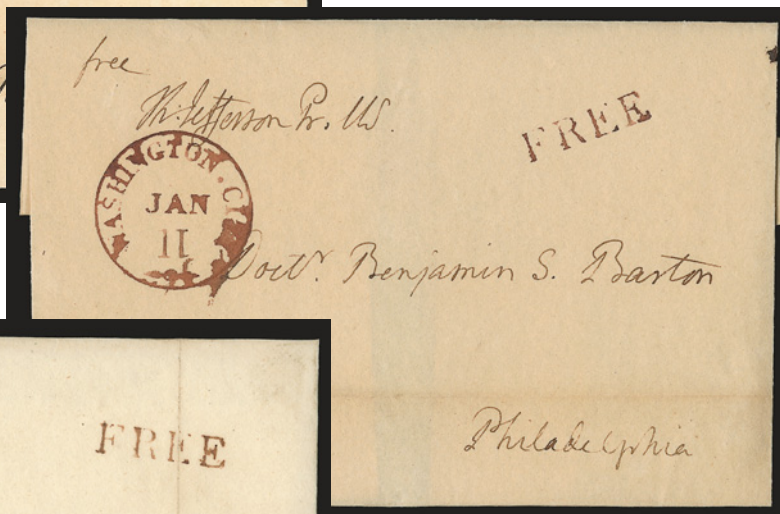 free
Th: Jefferson Pr. US.
FREE
WASHINGTON. CITY
JAN
11
Doctr. Benjamin S. Barton
Philadelphia
FREE